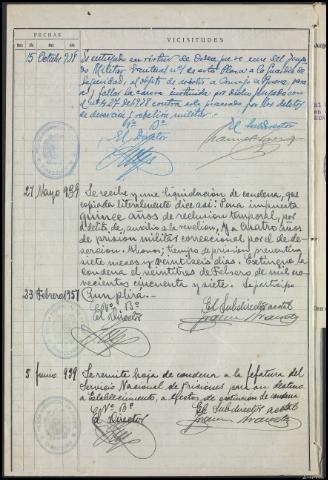 FECHAS
VICISITUDES
Día Mes Año
5 Octubre 938
Es entregado en virtud de Orden del
Militar Eventual nº 1 de esta Plaza a la
Seguridad, al objeto de asistir a Consejo de Guerra, para
y fallar la causa instruida por dicho Juzgado con
el nº 427 de 1938 contra este procesado por los delitos
de deserción y rebelión militar.
Vº Bº
El Director
El Subdirector
27 Mayo 939
Se recibe y une liquidación de condena, que
copiada literalmente dice así: Pena impuesta
quince años de reclusion temporal, por
delito de, auxilio a la rebelion, y a cuatro años
de prision militar correccional por el de de-
sercion. Abono; tiempo de prision preventiva
siete meses y veintiseis dias. Extingue la
condena el veintitres de Febrero de mil no-
vecientos cincuenta y siete.
23 Febrero 1957
Cumplira.
Vº Bº
El Director
El Subdirector acctal
5 Junio 939
Se remite hoja de condena a la Jefatura del
Servicio Nacional de Prisiones para su destino
a Establecimiento, a efectos de extincion de condena
Vº Bº
El Director
El Subdirector acctal